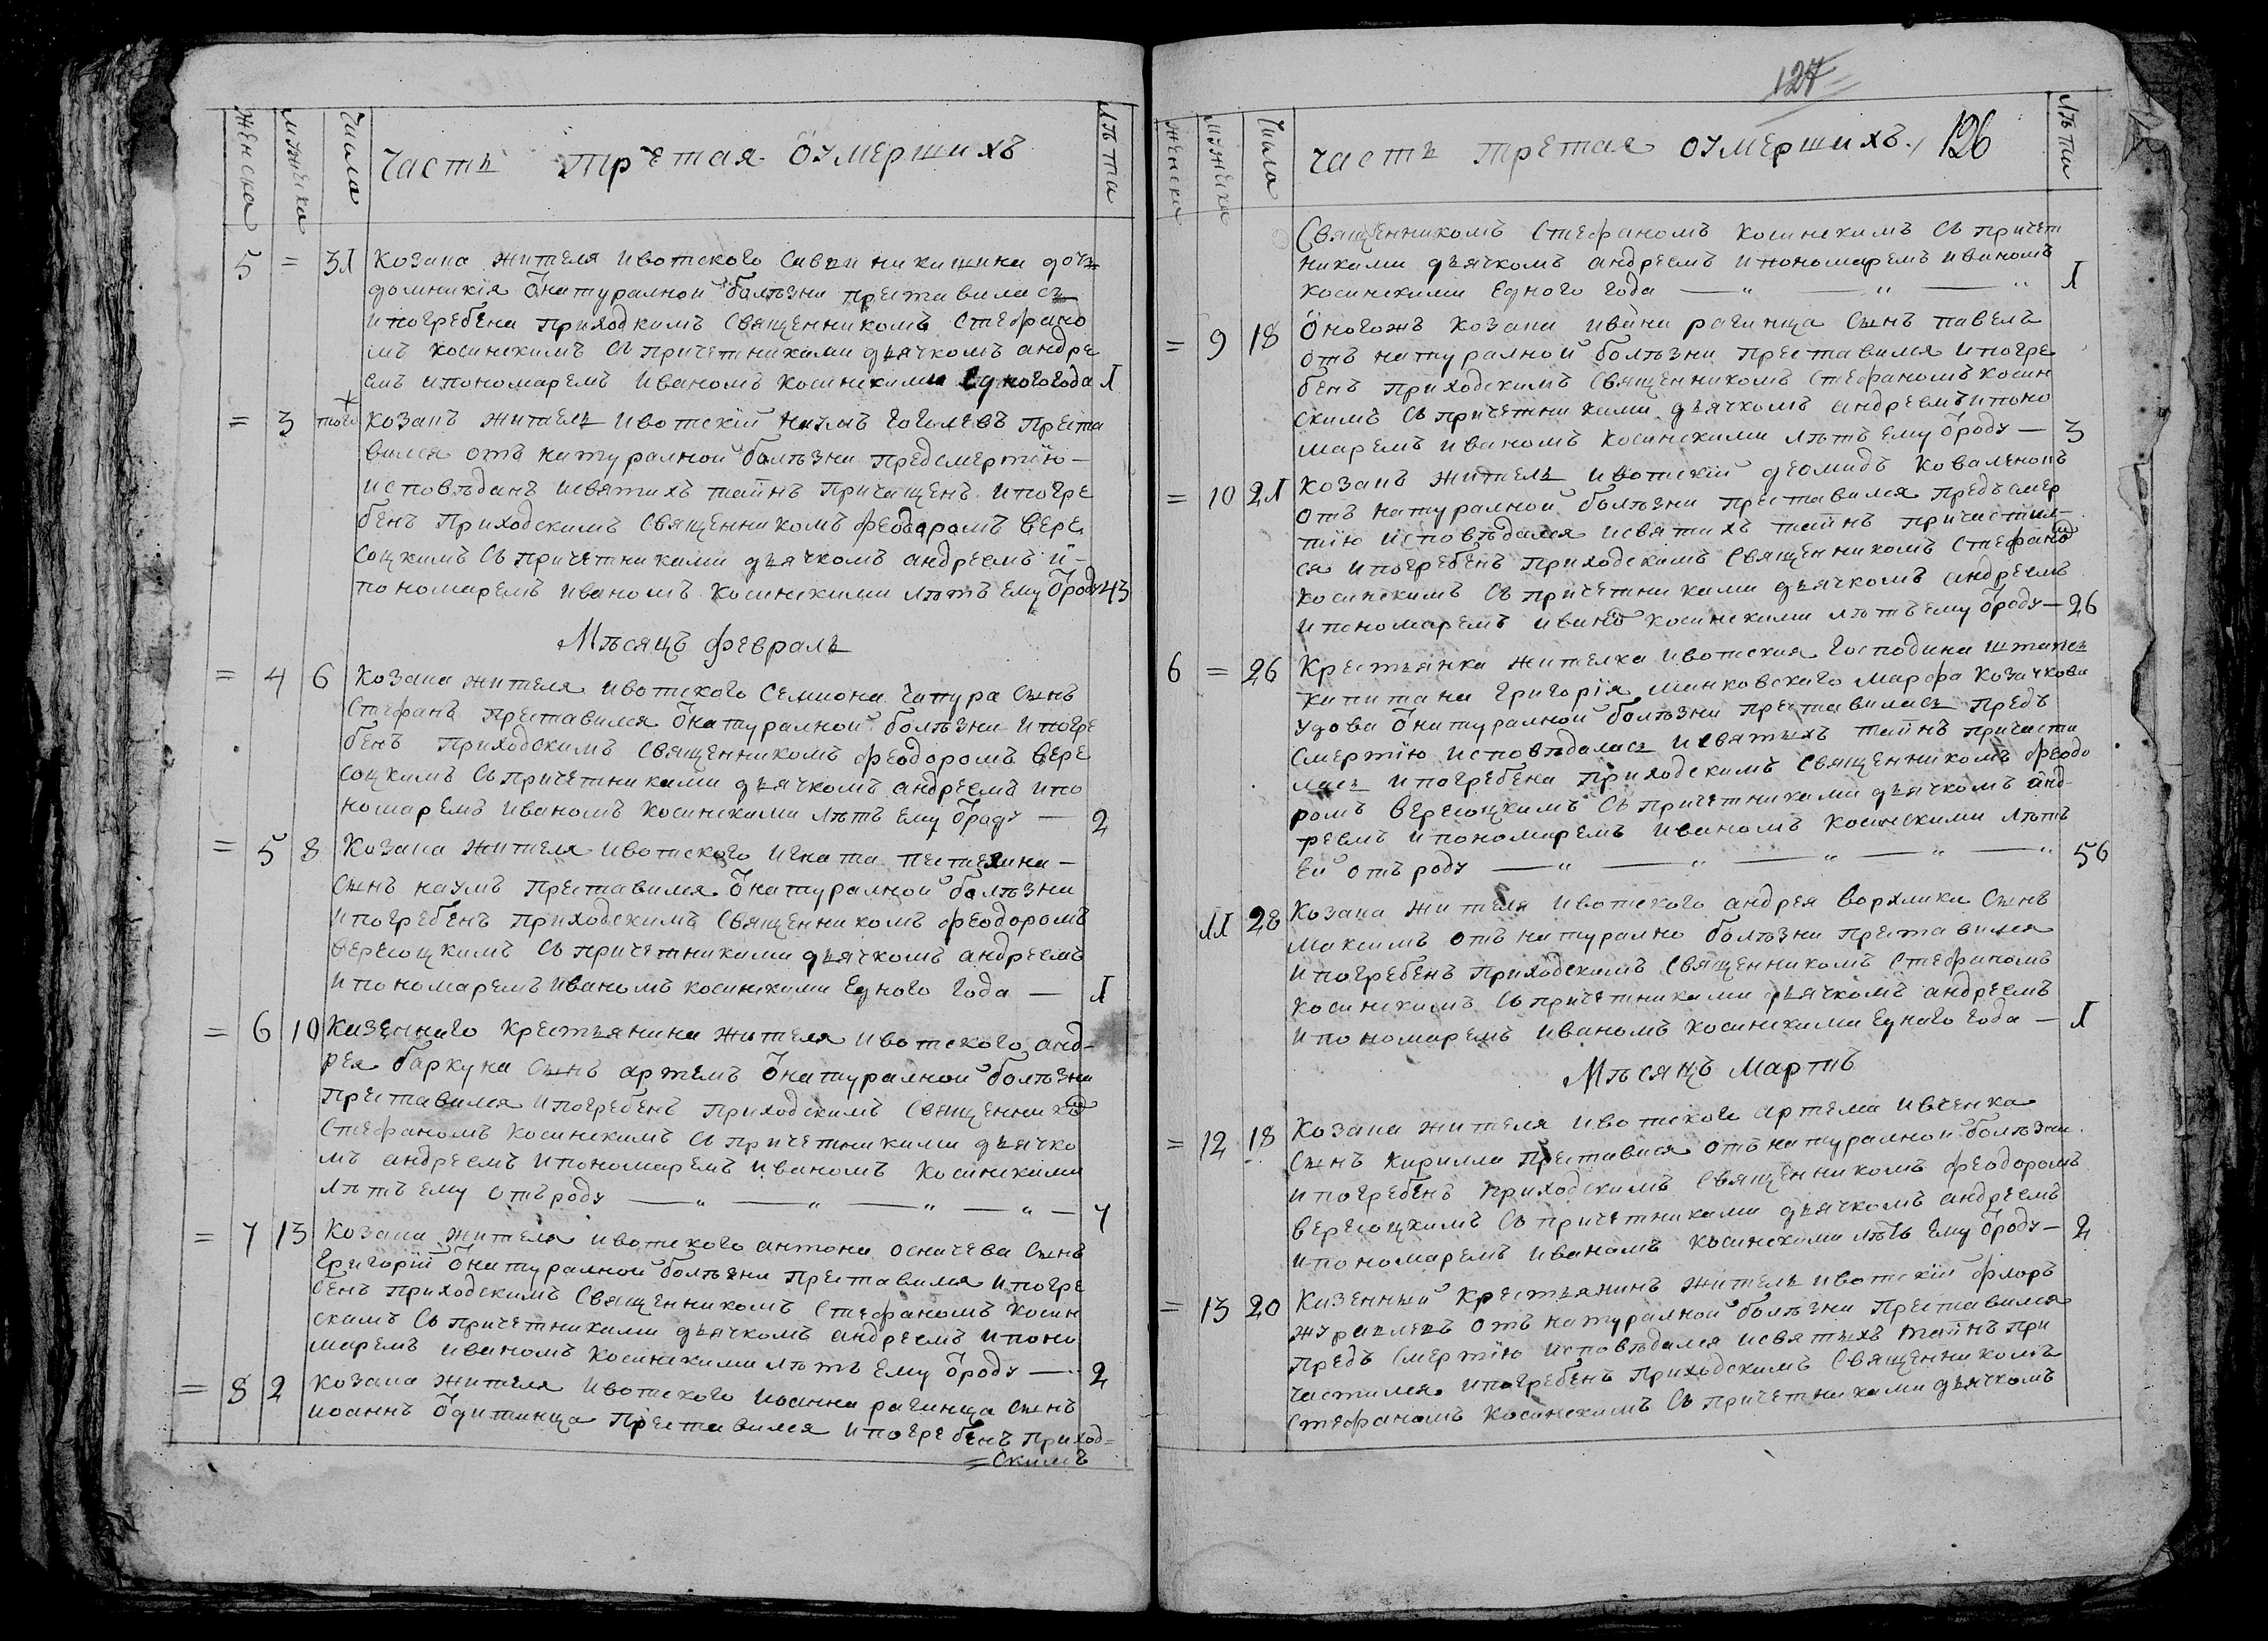 женска мужеска числа Часть третая ѹмершихъ лѣта
5 = 31 Козака жителя ивотского Саввы никишина дочь
домникія ѿ натуралной болѣзни преставиласъ
и погребена приходкимъ Священникомъ Стефано
мъ косинскимъ съ причетниками дьячкомъ андре
емъ и пономаремъ Иваномъ косинскими Едного года 1
= 3 того Козакъ житель ивотскій наумъ гоголевъ преста
вился отъ натуралной болѣзни предсмертїю –
исповѣданъ исвятихъ таинъ причащенъ и погре
бенъ Приходскимъ Священникомъ феодоромъ Вере
соцкимъ съ причетниками дьячкомъ андреемъ и –
пономаремъ иваномъ косинскими лѣтъ ему ѿроду 43
Мѣсяцъ февраль
= 4 6 Козака жителя ивотского Семиона Сынъ
Стефанъ преставился ѿ натуралной болѣзни и погре
бенъ приходскимъ Священникомъ феодоромъ Вере
соцкимъ съ причетниками дьячкомъ андреемъ и по
номаремъ иваномъ косинскими лѣтъ ему ѿроду — 2
= 5 8 Козака жителя ивотского игната –
Сынъ наумъ преставился ѿ натуралной болѣзни
и погребенъ приходскимъ Священникомъ феодоромъ
вересоцкимъ съ причетниками дьячкомъ андреемъ
и пономаремъ иваномъ косинскими Едного года — 1
= 6 10 Казенного крестьянина жителя ивотского анд-
рея баркуна Сынъ артемъ ѿ натуралной болѣзни
преставился и погребенъ приходскимъ Священнико
Стефаномъ косинскимъ съ причетниками дьячко
мъ андреемъ и пономаремъ иваномъ косинскими
лѣтъ ему отъ роду — „ — „ — „ — „ — 4
= 7 13 Козака жителя ивотского антона осначева Сынъ
григорїй ѿ натуралной болѣзни преставился и погре
бенъ приходскимъ Священникомъ Стефаномъ косин
скимъ съ причетниками дьячкомъ андреемъ и поно
маремъ иваномъ косинскими лѣтъ ему ѿроду — 2
= 8 2 Козака жителя ивотского иоанна рагинца Сынъ
иоаннъ преставился и погребенъ приход=
=скимъ
127
женска мужеска числа Часть третая ѹмершихъ. 126 лѣта
Священникомъ Стефаномъ косинскимъ съ причет
никами дьячкомъ андреемъ и пономаремъ иваномъ
косинскими Едного года — „ — „ — „ 1
= 9 18 Оногожъ козака ивана рагинца Сынъ павелъ
отъ натуралной болѣзни преставился и погре
бенъ приходскимъ Священникомъ Стефаномъ косин
скимъ съ причетниками дьячкомъ андреемъ и поно
маремъ иваномъ косинскими лѣтъ ему ѿроду — 3
= 10 21 Козакъ житель ивотскій деомидъ коваленокъ
отъ натуралной болѣзни преставился предъ смер
тїю исповѣдался исвятихъ таинъ причастил-
ся и погребенъ приходскимъ Священникомъ Стефано
косинскимъ съ причетниками дьячкомъ андреемъ
и пономаремъ ивано косинскими лѣтъ ему ѿроду — 26
6 = 26 Крестьянка жителка ивотская господина штапсъ
капитана григорїя маньковского марфа козачкова
удова ѿ натуралной болѣзни преставилась предъ
смертїю исповѣдалась исвятыхъ таинъ причасти
лась и погребена приходскимъ Священникомъ феодо
ромъ вересоцкимъ съ причетниками дьячкомъ анд-
реемъ и пономаремъ иваномъ косинскими лѣтъ
ей отъ роду — „ — „ — „ — „ — „ 56
11 28 Козака жителя ивотского андрея ворхлика Сынъ
максимъ отъ натурално болѣзни преставился
и погребенъ приходскимъ Священникомъ Стефаномъ
косинскимъ съ причетниками дьячкомъ андреемъ
и пономаремъ иваномъ косинскими Едного года — 1
Мѣсяцъ Мартъ
= 12 18 Козака жителя ивотского артема ивченка
Сынъ кирилла преставися отъ натуралной болѣзни
и погребенъ приходскимъ Священникомъ феодоромъ
вересоцкимъ съ причетниками дьячкомъ андреемъ
и пономаремъ иваномъ косинскими лѣтъ ему ѿроду — 2
= 13 20 Казенный крестьянинъ житель ивотскїй флоръ
журавлевъ отъ натуралной болѣзни преставился
предъ смертїю исповѣдался исвятыхъ таинъ при
частился и погребенъ приходскимъ Священникомъ
Стефаномъ косинскимъ съ причетниками дьячкомъ